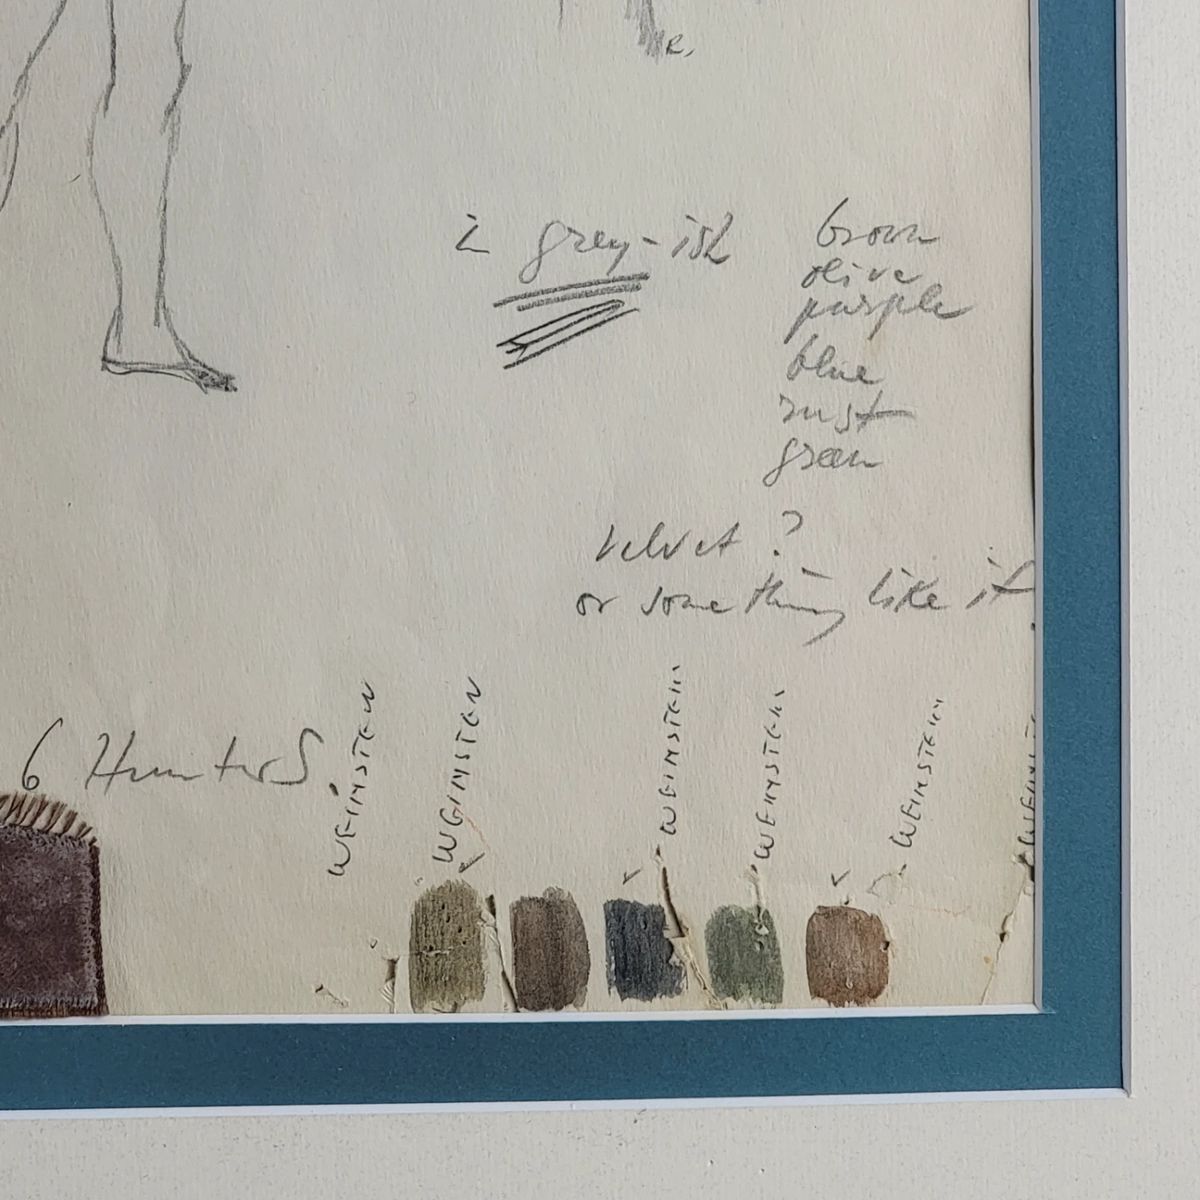 R.
in grey-ish
brown
olive
purple
blue
rust
green
velvet ?
or something like it
6 Hunters.
WEINSTEIN
WEINSTEIN
WEINSTEIN
WEINSTEIN
WEINSTEIN